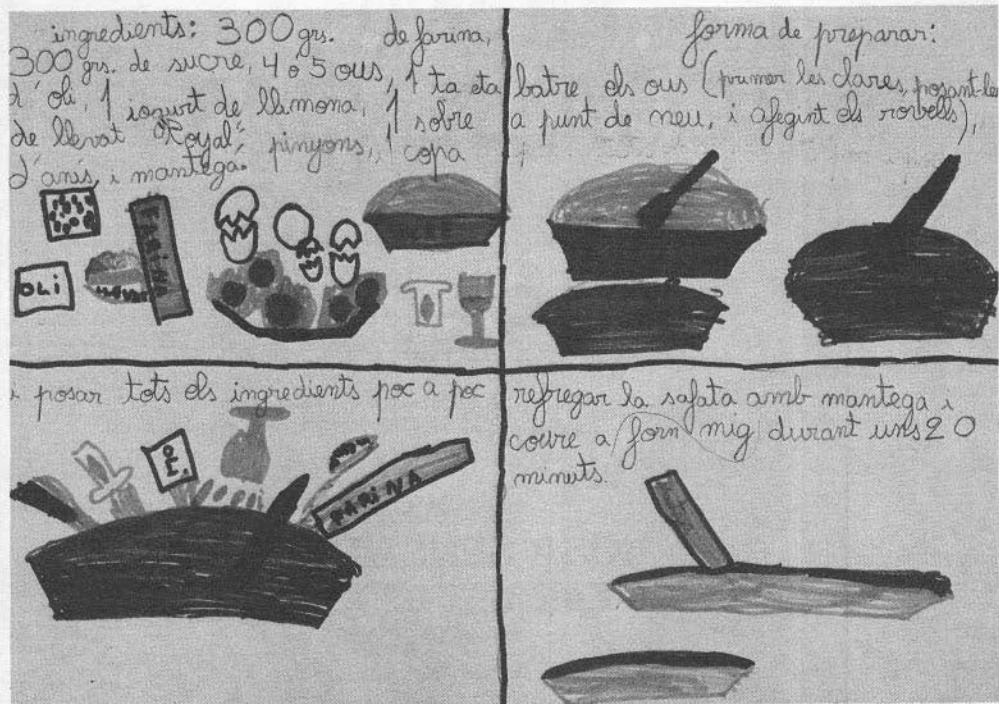 ingredients: 300 grs. de farina,
300 grs. de sucre, 4 o 5 ous, 1 ta eta
d'oli, 1 iogurt de llimona, 1 sobre
de llevat "Royal", pinyons, 1 copa
d'anís i mantega.
FARINA
OLI
forma de preparar:
batre els ous (primer les clares, posant-les
a punt de neu, i afegint els rovells),
i posar tots els ingredients poc a poc
FARINA
refregar la safata amb mantega i
coure a forn mig durant uns 20
minuts.